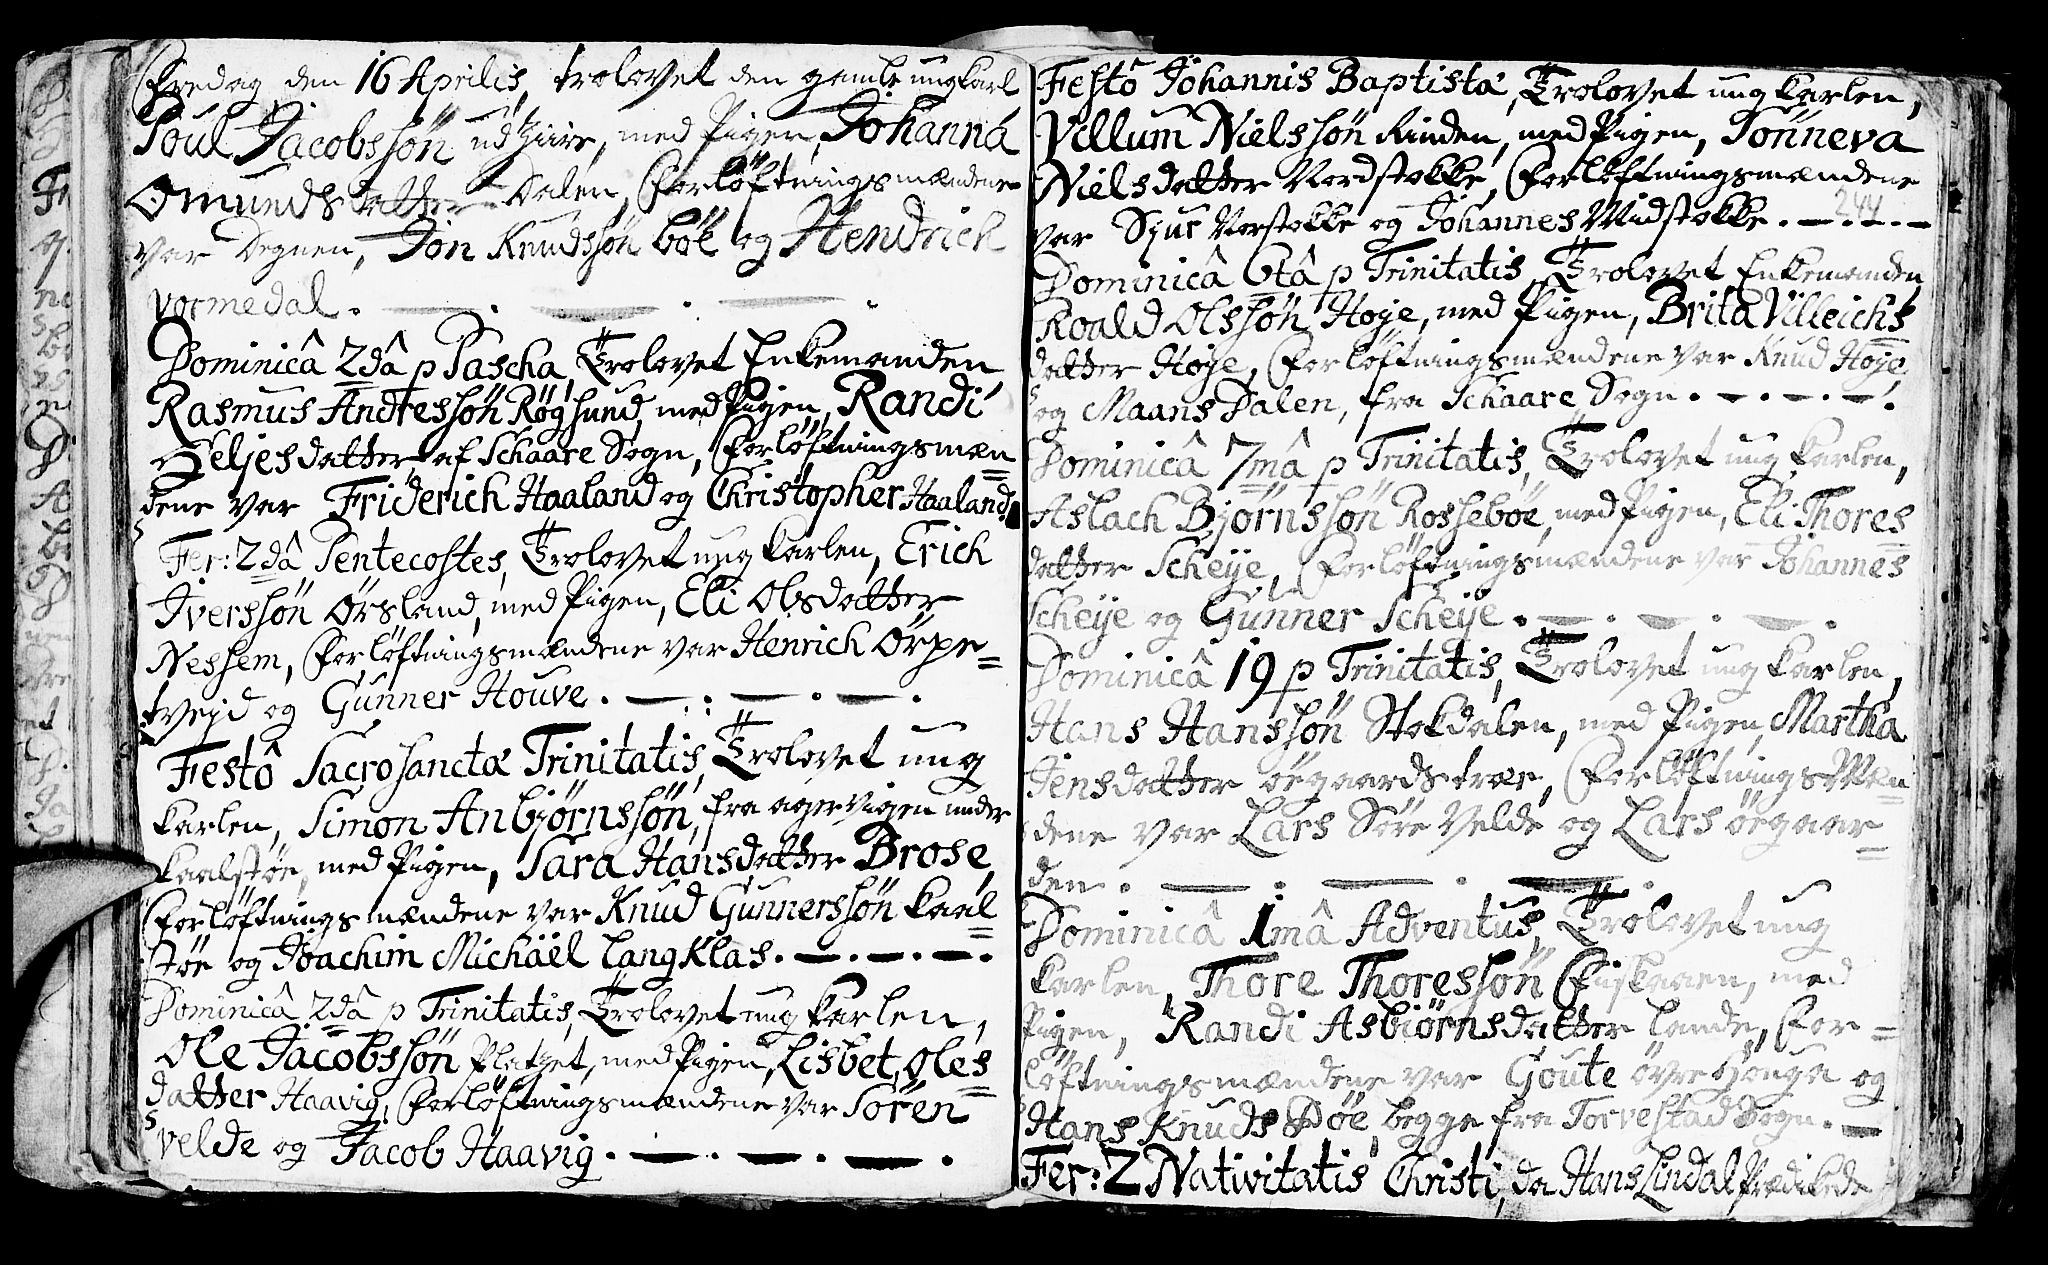 Fredag den 16 Aprilis, trolovet den gamle ungkarl
Poul Jacobssøn ud Ziire, med Pigen, Johanna
Omunds datter Dalen, Forløftningsmændene
var Degnen, Jon Knudssøn bøe og Hendrich
vormedal.
Dominicâ 2dâ p Pascha, Trolovet Enkemanden
Rasmus Andressøn Røgsund, med Pigen, Randi
Seljesdatter af Schaare Sogn, Forløftningsmæn=
dene var Friderich Haaland og Christopher Haaland.
Fer: 2dâ Pentecostes, Trolovet ung karlen, Erich
Iverssøn Ørsland, med Pigen, Eli Olsdatter
Nessem, Forløftningsmændene var Henrich Ørpe=
tvejd og Gunner Houve.
Festô Sacrosanctæ Trinitatis, Trolovet ung
karlen, Simon Anbjørnssøn, fra agervigen under
kaalstøe, med Pigen, Sara Hansdatter Brose,
Forløftningsmændene var Knud Gunnerssøn kaal=
støe og Joachim Michaël Langklas.
Dominicâ 2dâ p Trinitatis, Trolovet ung karlen,
Ole Jacobssøn Platzet, med Pigen, Lisbet, Oles=
datter Haavig, Forløftningsmændene var Sören
velde og Jacob Haavig.
Festô Johannis Baptistæ, Trolovet ung karlen,
Villum Nielssøn Rinden, med Pigen, Tönneva
Nielsdatter Nordstokke, Forløftningsmændene
var Sjur Norstokke og Johannes Midstokke.
244
Dominicâ 6tâ p Trinitatis, Trolovet Enkemanden
Roald Olssøn Høje, med Pigen, Brita Villeichs=
datter Høje, Forløftningsmændene var Knud Høje
og Maans Dalen, fra Schaare Sogn.
Dominicâ 7mâ p Trinitatis, Trolovet ung karlen,
Aslach Bjørnssøn Rossebøe, med Pigen, Eli Thores=
datter Scheije, Forløftningsmændene var Johannes
Scheije og Gunner Scheije.
Dominicâ 19 p Trinitatis, Trolovet ung karlen,
Hans Hanssøn Stokdalen, med Pigen, Martha
Jensdatter øegaardstræe, Forløftnings Mæn=
dene var Lars Søre Velde og Lars øegaar=
den.
Dominicâ 1mâ Adventus, Trolovet ung
karlen, Thore Thoressøn Fiskaaen, med
Pigen, Randi Asbiørnsdatter Lande, For=
løftningsmændene var Goute øvre Houga og
Hans Knuds Døe, begge fra Torvestad Sogn.
Fer: 2 Nativitatis Christi, da Hans Lindal Prædikede